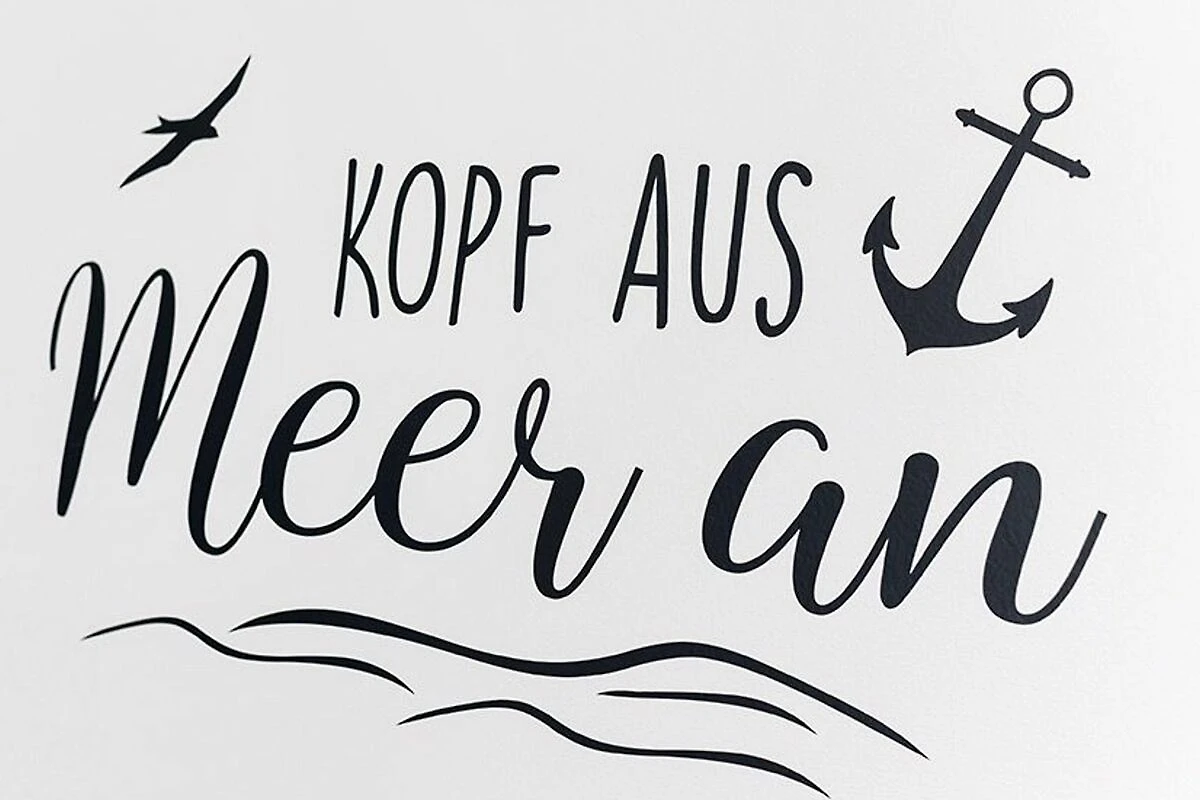 KOPF AUS
Meer an